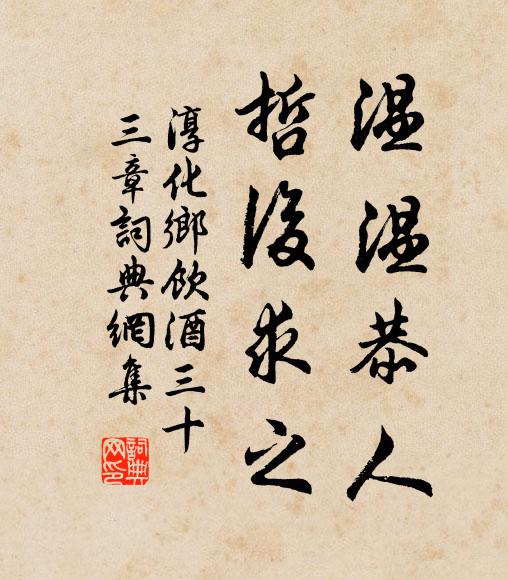 温温恭人
哲后求之
淳化鄉飲酒三十
三章詞典網集
詞典
网印